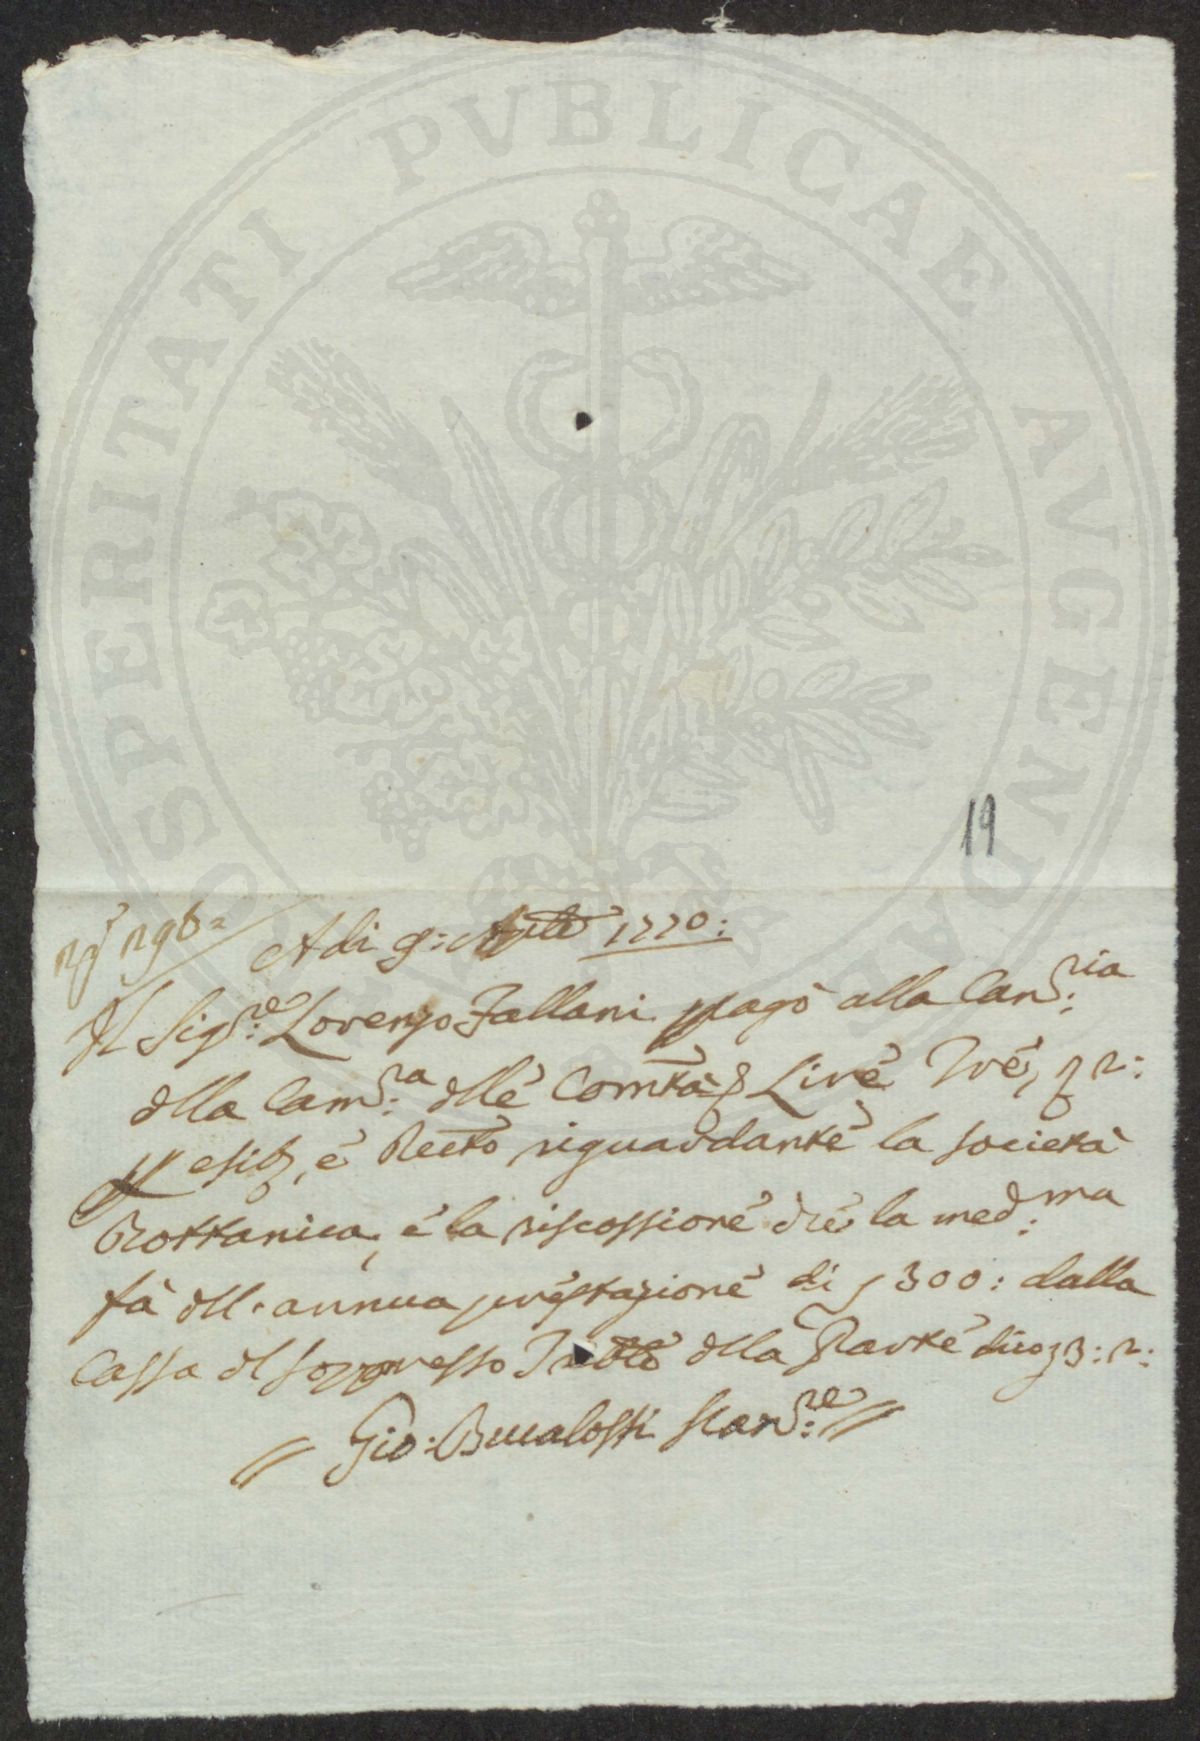 PROSPERITATI PVBLICAE AVGENDAE
19
Adi 9: Aple 1770:
Il Sigre: Lorenzo Fallani pagò alla Canria:
dlla Camra: dlle Comtà Lire Tre, 2:
esib, e Rectto riguardante la Società
Bottanica, e la riscossione che la medma:
fà dll'annua prestazione di 300: dalla
Cassa dl soppresso dlla Parte dico 3: 2:
Gio: Bucalossi Canre: